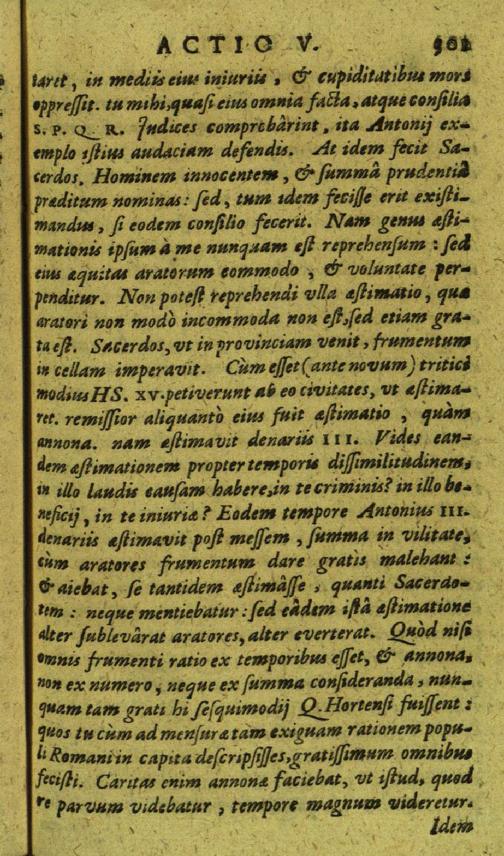 ACTIO V. 501
taret, in mediis eius iniuriis, & cupiditatibus mors
oppressit. tu mihi, quasi eius omnia facta, atque consilia
S. P. Q. R. Judices comprobârint, ita Antonij ex-
emplo istius audaciam defendis. At idem fecit Sa-
cerdos. Hominem innocentem, & summâ prudentiâ
præditum nominas: sed, tum idem fecisse erit existi-
mandus, si eodem consilio fecerit. Nam genus æsti-
mationis ipsum à me nunquam est reprehensum: sed
eius æquitas aratorum commodo, & voluntate per-
penditur. Non potest reprehendi ulla æstimatio, quæ
aratori non modò incommoda non est, sed etiam gra-
ta est. Sacerdos, ut in provinciam venit, frumentum
in cellam imperavit. Cùm esset (ante novum) tritici
modius HS. XV. petiverunt ab eo civitates, ut æstima-
ret. remissior aliquantò eius fuit æstimatio, quàm
annona. nam æstimavit denariis III. Vides ean-
dem æstimationem propter temporis dissimilitudinem,
in illo laudis causam habere, in te criminis? in illo be-
neficij, in te iniuriæ? Eodem tempore Antonius III.
denariis æstimavit post messem, summa in vilitate,
cùm aratores frumentum dare gratis malehant:
& aiebat, se tantidem æstimâsse, quanti Sacerdo-
tem: neque mentiebatur: sed eâdem istâ æstimatione
alter sublevârat aratores, alter everterat. Quòd nisi
omnis frumenti ratio ex temporibus esset, & annona,
non ex numero, neque ex summa consideranda, nun-
quam tam grati hi sesquimodij Q. Hortensi fuissent:
quos tu cùm ad mensuræ tam exiguam rationem popu-
li Romani in capita descripsisses, gratissimum omnibus
fecisti. Caritas enim annonæ faciebat, ut istud, quod
re parvum videbatur, tempore magnum videretur.
Idem